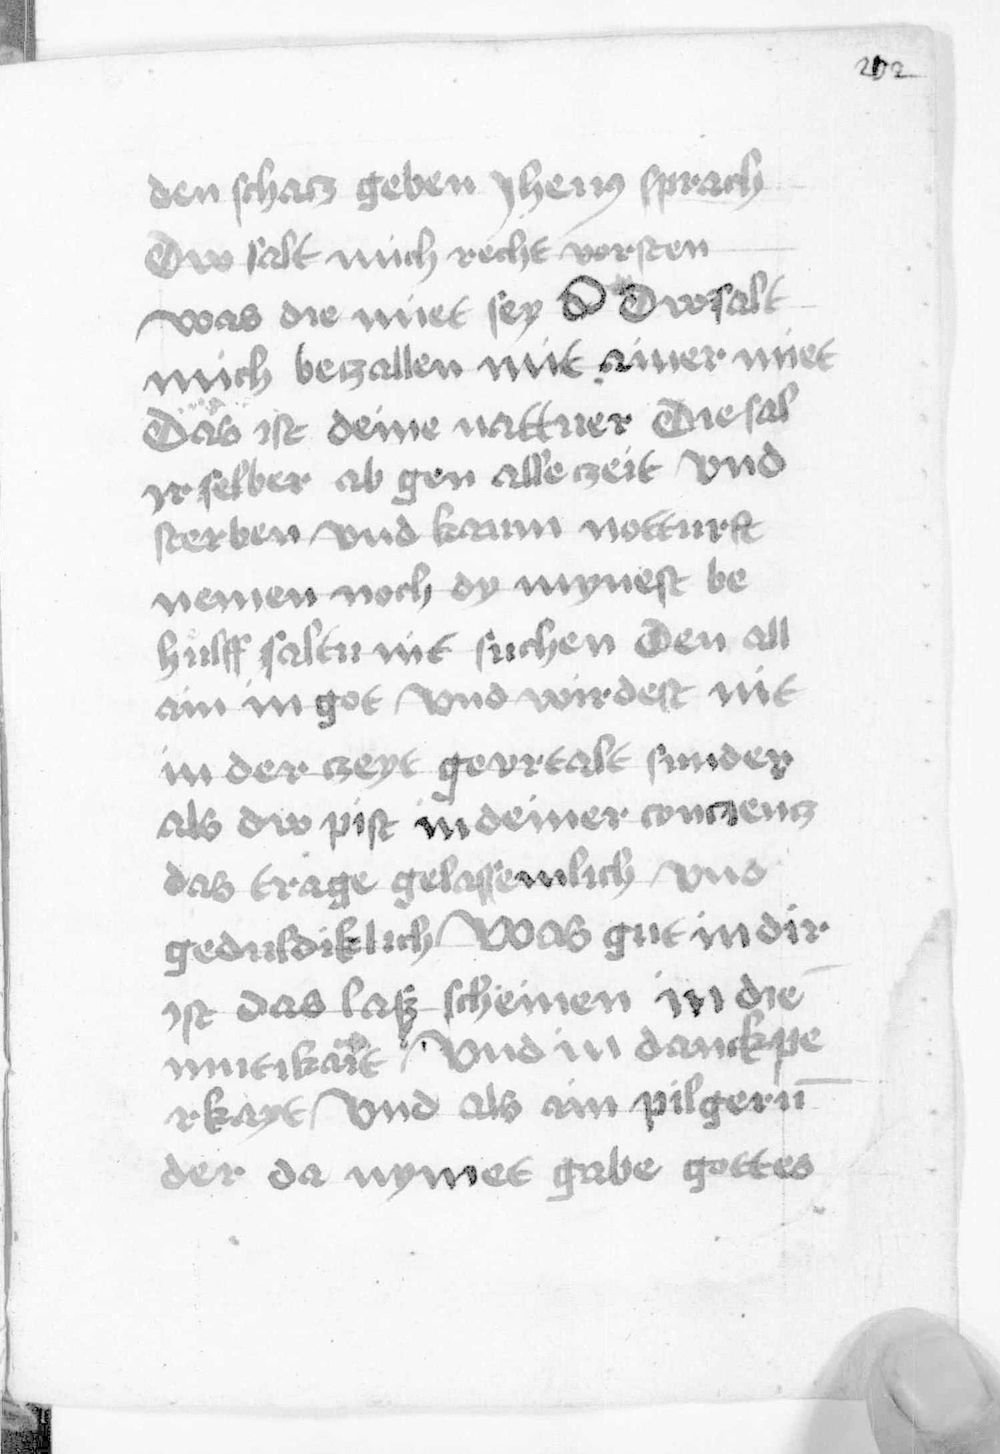 202
den schacz geben yhesus sprach
Dw salt mich recht vorsten
was die miet sey D Dw salt
mich beczallen mit ainer miet
Das ist deine nattuer Die sal
yr selber ab gen alleczeit vnd
sterben vnd kaum notturft
nemen noch dy mynest be
hulff saltu nit suchen Den all
ain in got vnd wirdest nit
in der czeyt gevrtalt sunder
als dw pist in deiner concienz
das trage gelassemlich vnd
geduldiklich Was gut in dir
ist das laß scheinen in die
mutikait vnd in danckpe
rkayt vnd als ain pilgerū
der da nymet gabe gottes